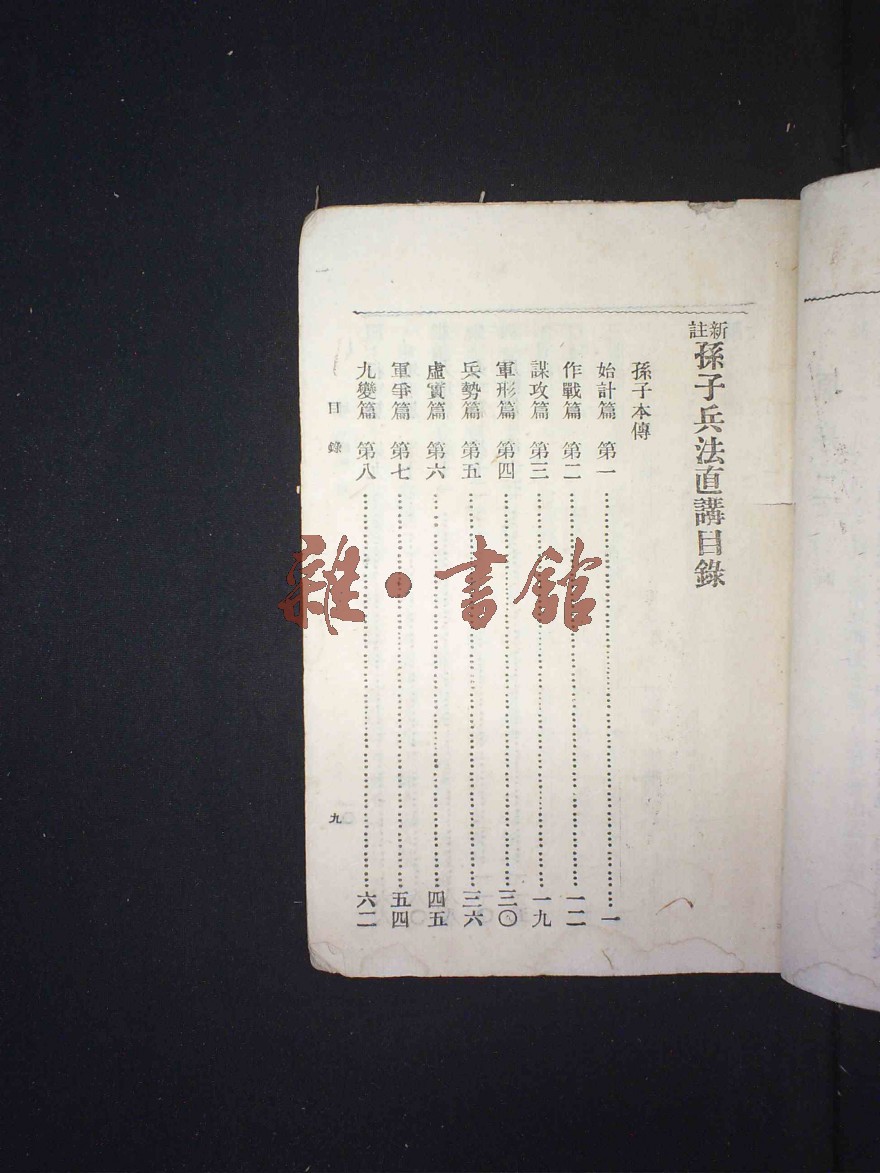 新註孫子兵法直講目錄
孫子本傳
始計篇　第一……一
作戰篇　第二……一二
謀攻篇　第三……一九
軍形篇　第四……三〇
兵勢篇　第五……三六
虛實篇　第六……四五
軍爭篇　第七……五四
九變篇　第八……六二
目錄
九
雜・書館